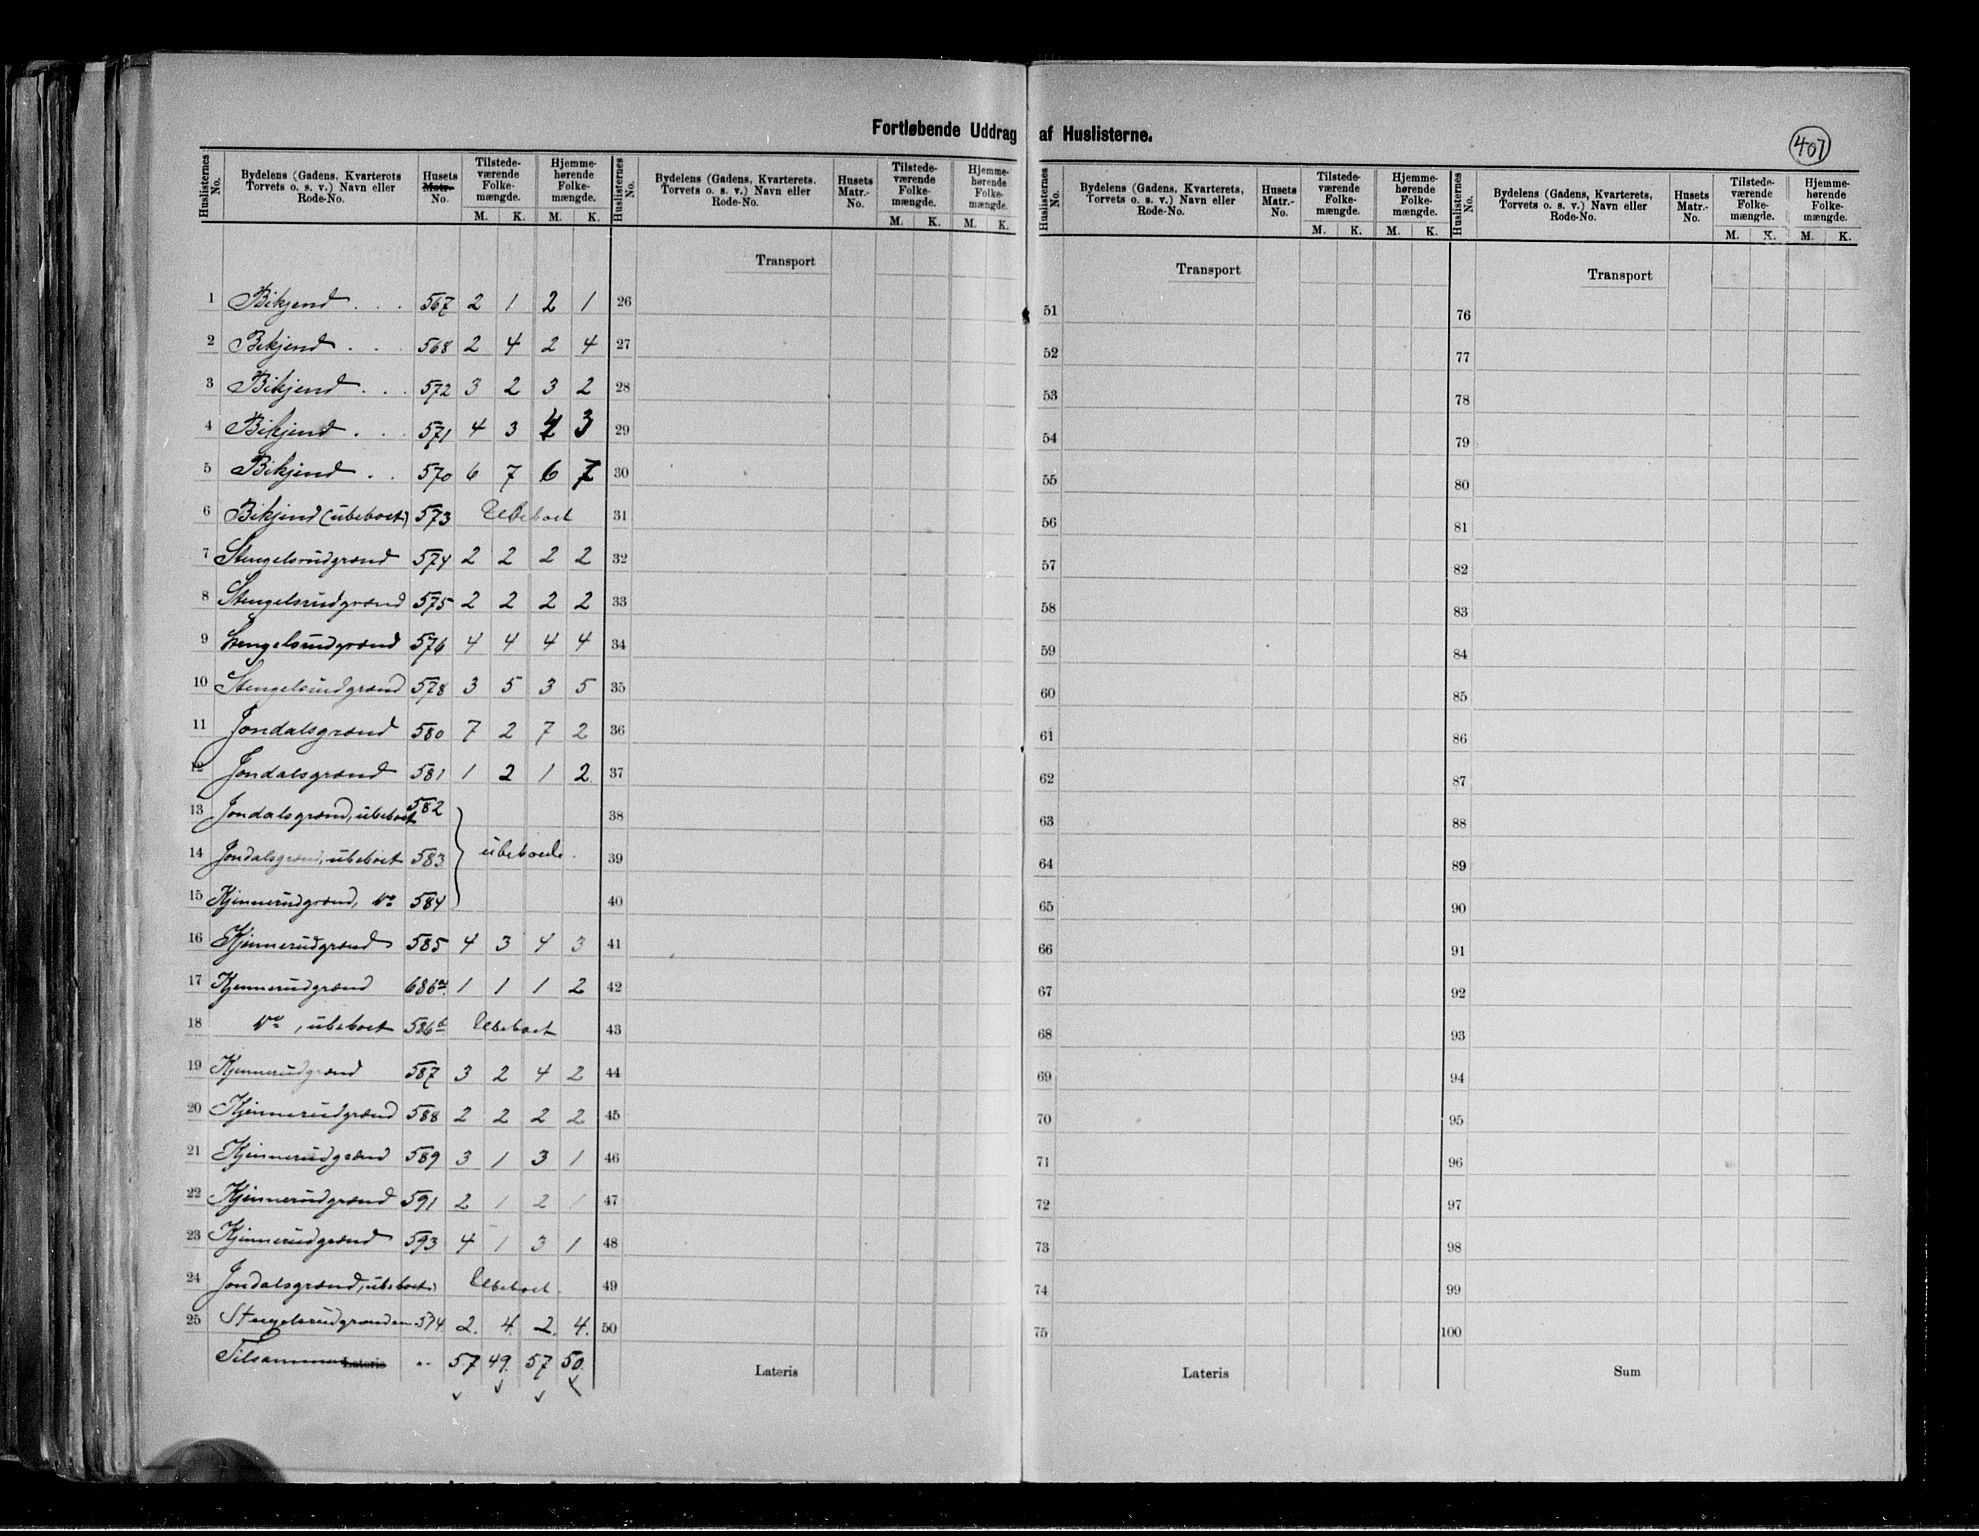 Fortløbende Uddrag af Huslisterne.
407
Huslisternes No. Bydelens (Gadens, Kvarterets Torvets o. s. v.) Navn eller Rode-No. Husets Matr.-No. Tilstedeværende Folkemængde. M. K. Hjemmehørende Folkemængde. M. K.
Huslisternes No. Bydelens (Gadens, Kvarterets, Torvets o. s. v.) Navn eller Rode-No. Husets Matr.-No. Tilstedeværende Folkemængde. M. K. Hjemmehørende Folkemængde. M. K.
Huslisternes No. Bydelens (Gadens, Kvarterets, Torvets o. s. v.) Navn eller Rode-No. Husets Matr.-No. Tilstedeværende Folkemængde. M. K. Hjemmehørende Folkemængde. M. K.
Huslisternes No. Bydelens (Gadens, Kvarterets, Torvets o. s. v.) Navn eller Rode-No. Husets Matr.-No. Tilstedeværende Folkemængde. M. K. Hjemmehørende Folkemængde. M. K.
Transport Transport Transport
1 Bikjend . . 567 2 1 2 1 26 51 76
2 Bekjend . . 568 2 4 2 4 27 52 77
3 Bikjend . . 572 3 2 3 2 28 53 78
4 Bikjend . . 571 4 3 4 3 29 54 79
5 Bikjend . . 570 6 7 6 7 30 55 80
6 Bikjend (ubeboet) 573 Ubeboet 31 56 81
7 Stengelsrudgrænd 574 2 2 2 2 32 57 82
8 Stengelsrudgrænd 575 2 2 2 2 33 58 83
9 Stengelsrudgrænd 576 4 4 4 4 34 59 84
10 Stengelsrudgrænd 578 3 5 3 5 35 60 85
11 Jondalsgrænd 580 7 2 7 2 36 61 86
12 Jondalsgrænd 581 1 2 1 2 37 62 87
13 Jondalsgrænd, ubeboet 582 38 63 88
14 Jondalsgrænd, ubeboet 583 ubeboede. 39 64 89
15 Kjennerudgrænd, do 584 40 65 90
16 Kjennerudgrænd 585 4 3 4 3 41 66 91
17 Kjennerudgrænd 686a 1 1 1 2 42 67 92
18 do , ubeboet 586b Ubeboet 43 68 93
19 Kjennerudgrænd 587 3 2 4 2 44 69 94
20 Kjennerudgrænd 588 2 2 2 2 45 70 95
21 Kjennerudgrænd 589 3 1 3 1 46 71 96
22 Kjennerudgrænd 591 2 1 2 1 47 72 97
23 Kjennerudgrænd 593 4 1 3 1 48 73 98
24 Jondalsgrænd, ubeboet Ubeboet 49 74 99
25 Stengelsrudgrænden 574 2. 4. 2. 4. 50 75 100
Tilsammen Lateris 57 49. 57 50. Lateris Lateris Sum